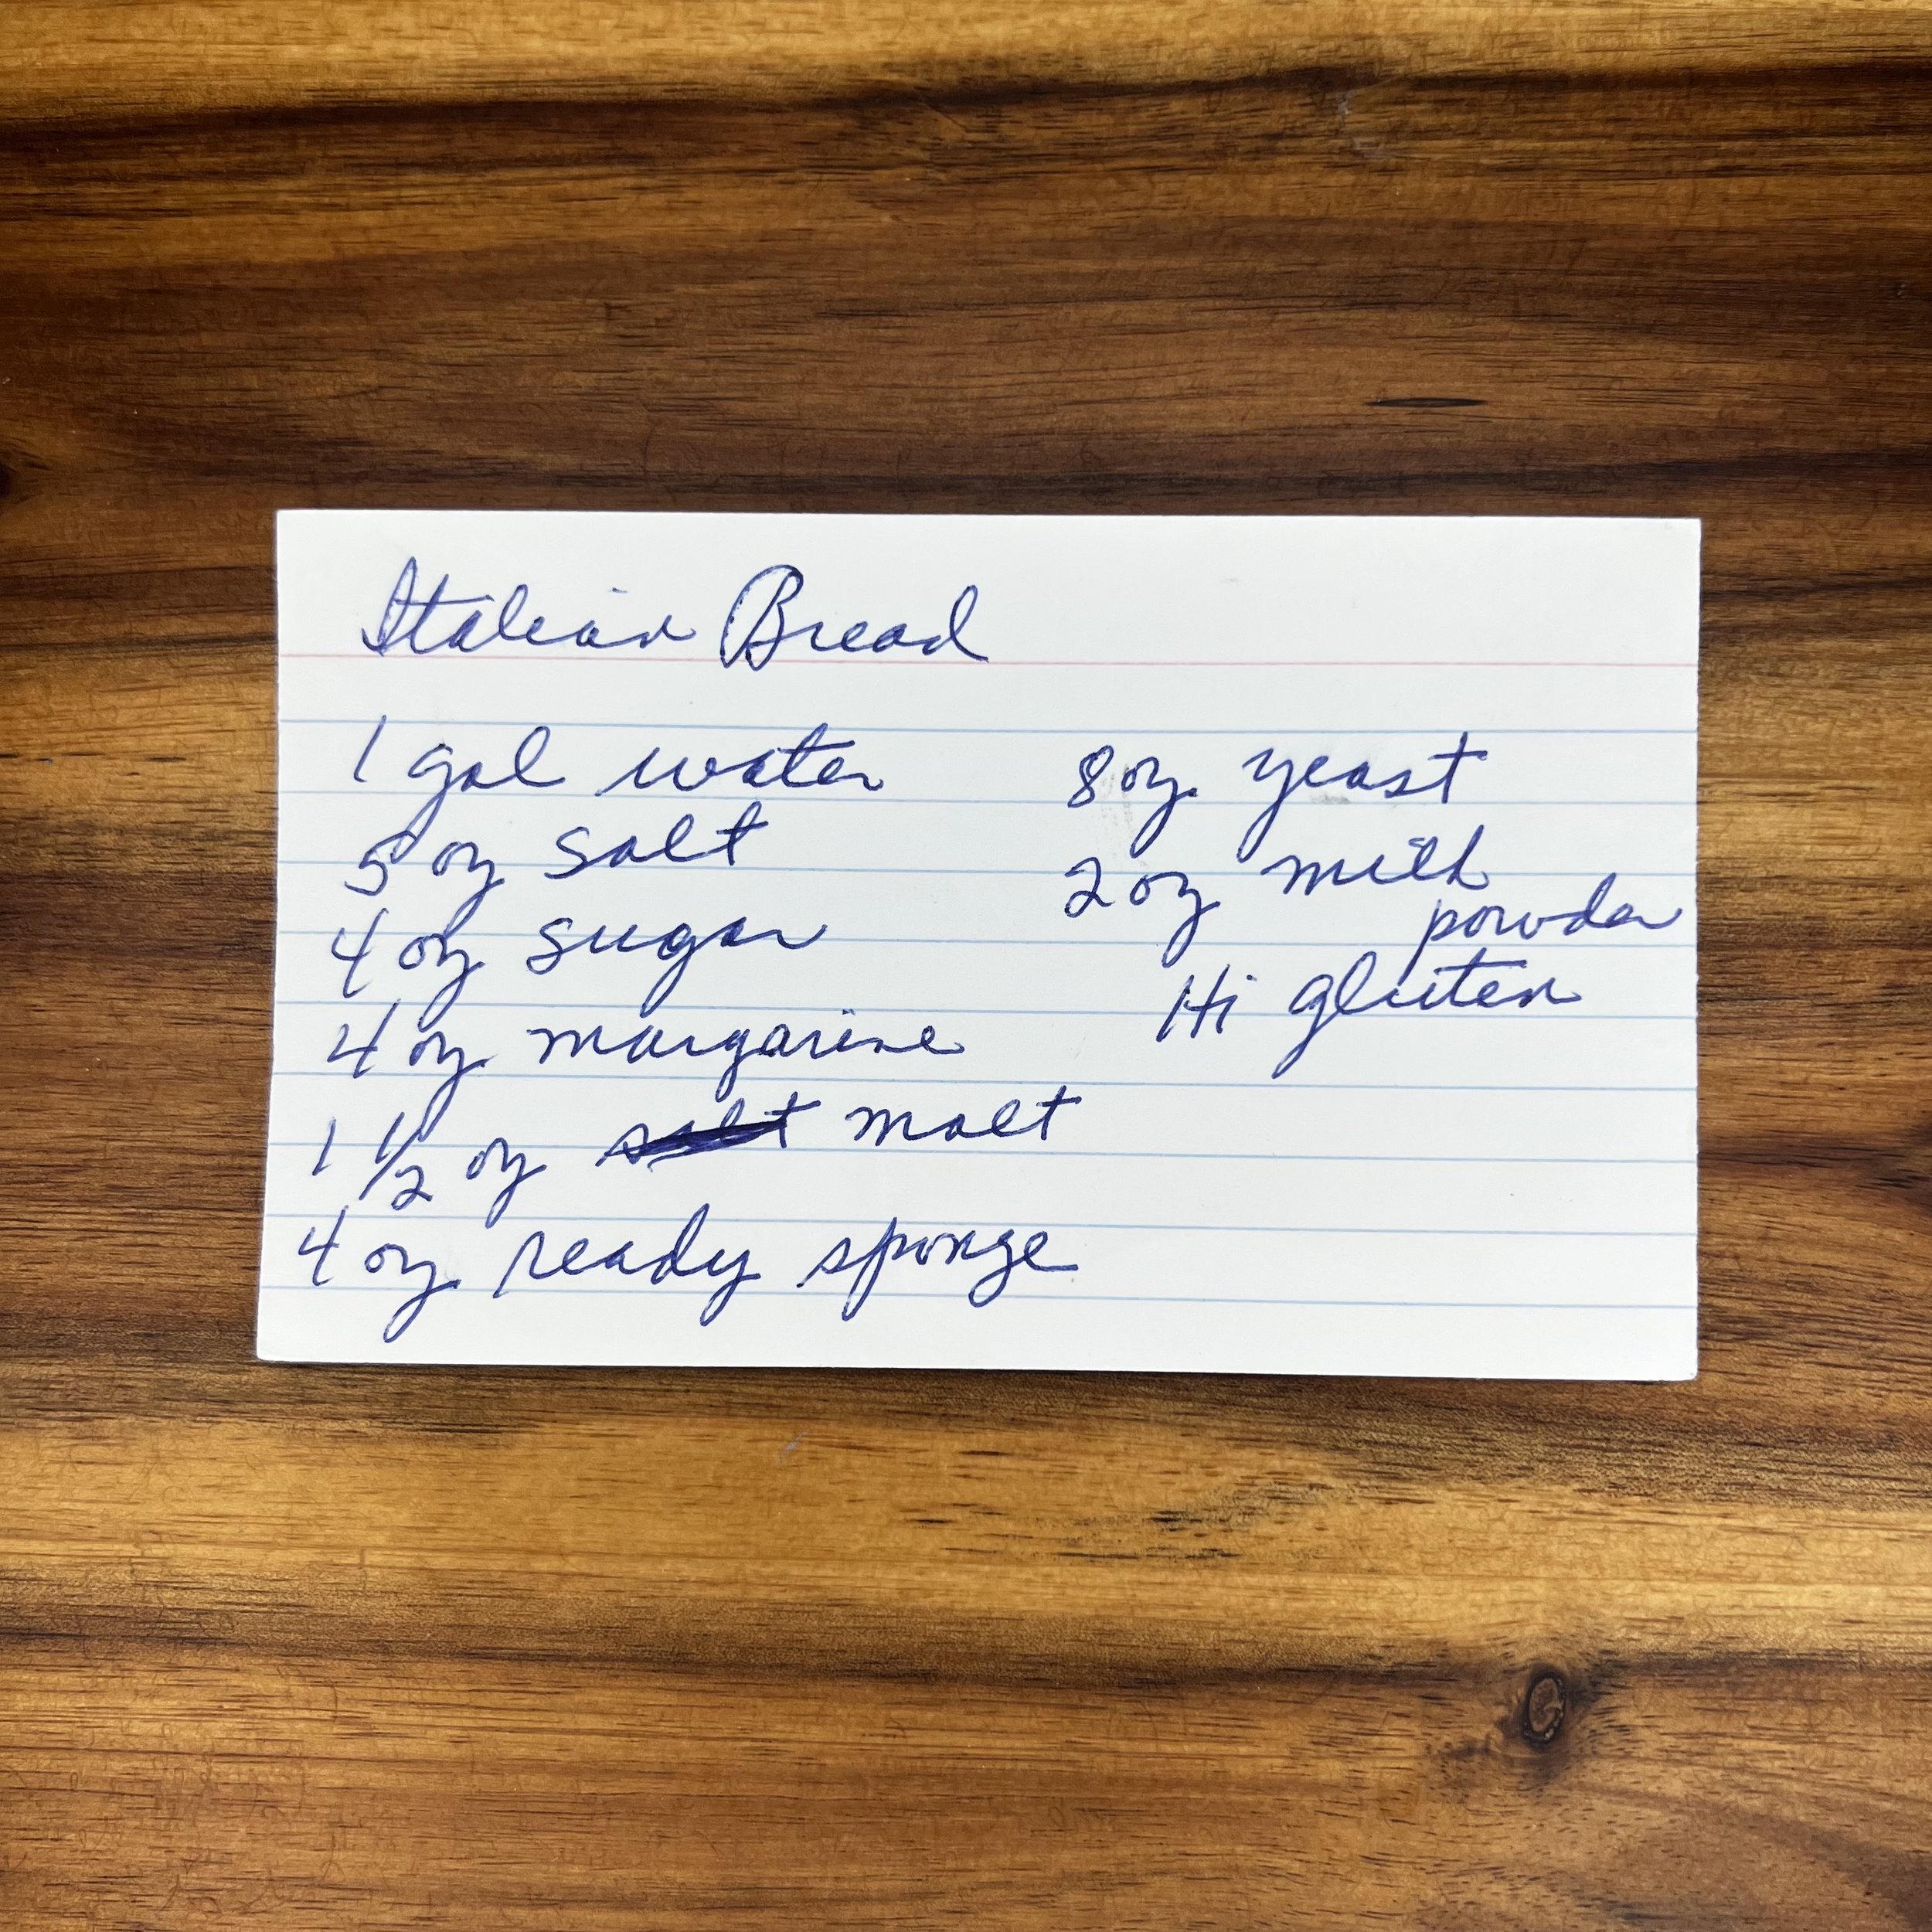 Italian Bread
1 gal water
5 oz salt
4 oz sugar
4 oz margarine
1 1/2 oz salt malt
4 oz ready sponge
8 oz yeast
2 oz milk
powder
Hi gluten